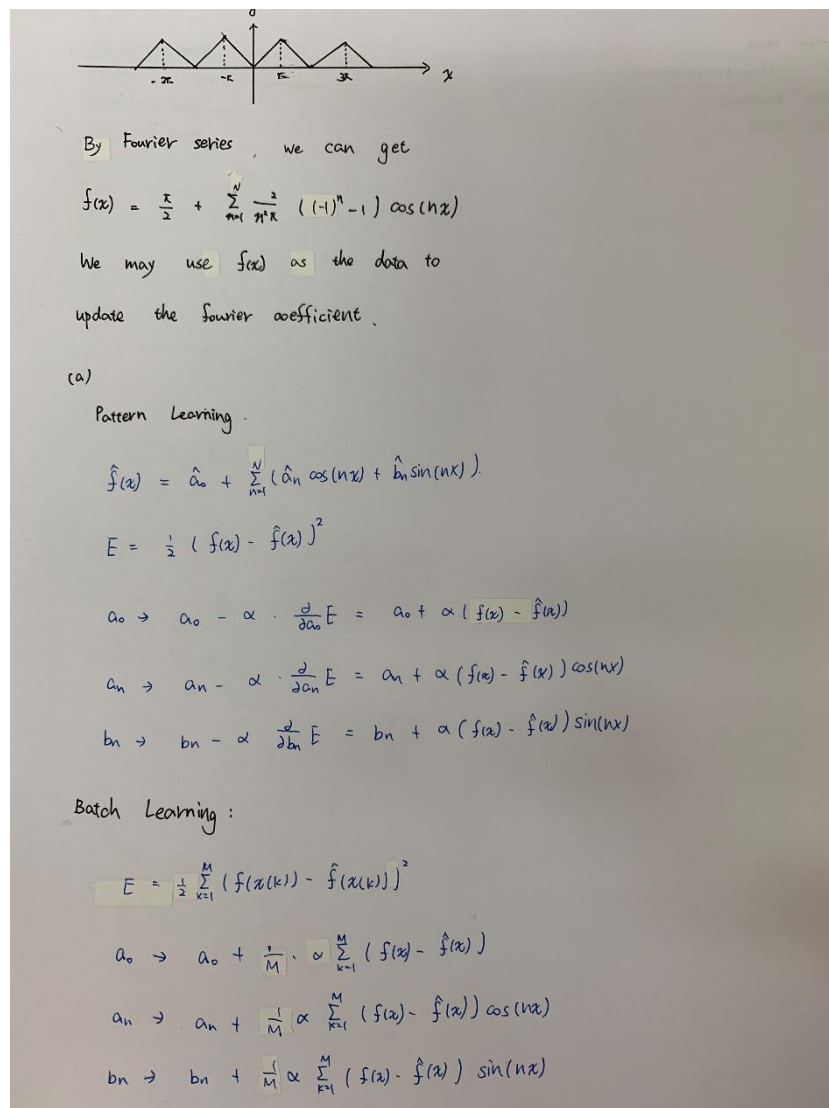 -3π -π π 3π x
By Fourier series, we can get
f(x) = π/2 + Σ_{n=1}^{N} 2/(n²π) ((-1)ⁿ - 1) cos(nx)
We may use f(x) as the data to
update the fourier coefficient.
(a)
Pattern Learning.
f̂(x) = â₀ + Σ_{n=1}^{N} (âₙ cos(nx) + b̂ₙ sin(nx)).
E = 1/2 (f(x) - f̂(x))²
a₀ → a₀ - α · ∂/∂a₀ E = a₀ + α (f(x) - f̂(x))
aₙ → aₙ - α · ∂/∂aₙ E = aₙ + α (f(x) - f̂(x)) cos(nx)
bₙ → bₙ - α ∂/∂bₙ E = bₙ + α (f(x) - f̂(x)) sin(nx)
Batch Learning:
E = 1/2 Σ_{k=1}^{M} (f(x(k)) - f̂(x(k)))²
a₀ → a₀ + 1/M · α Σ_{k=1}^{M} (f(x) - f̂(x))
aₙ → aₙ + 1/M α Σ_{k=1}^{M} (f(x) - f̂(x)) cos(nx)
bₙ → bₙ + 1/M α Σ_{k=1}^{M} (f(x) - f̂(x)) sin(nx)